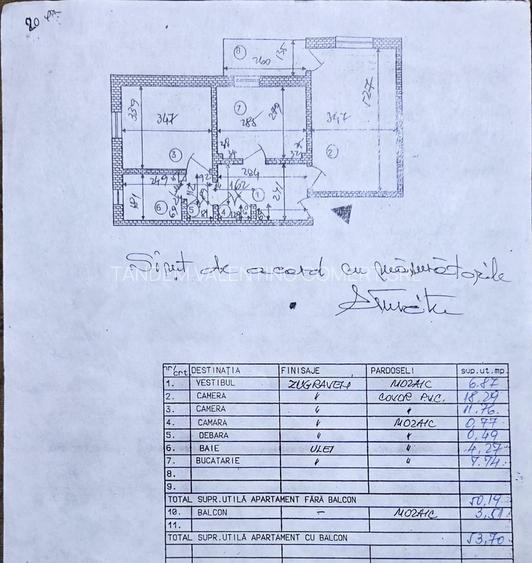 8
135
260
339
347
7
288
299
527
347
3
2
249
284
162
1
241
187
6
5
4
Sînt de acord cu măsurătorile
TANDEM VALENTINO COMERCIAL
nr/crt. DESTINAŢIA FINISAJE PARDOSELI sup.ut.mp.
1. VESTIBUL ZUGRAVELI MOZAIC 6.87
2. CAMERA " COVOR PVC. 18,29
3. CAMERA " " 11.76
4. CAMARA " MOZAIC 0,77
5. DEBARA " " 0,49
6. BAIE ULEI " 4,27
7. BUCATARIE " "
8.
9.
TOTAL SUPR.UTILĂ APARTAMENT FĂRĂ BALCON 50,19
10. BALCON – MOZAIC 3,51
11.
TOTAL SUPR.UTILĂ APARTAMENT CU BALCON 53,70